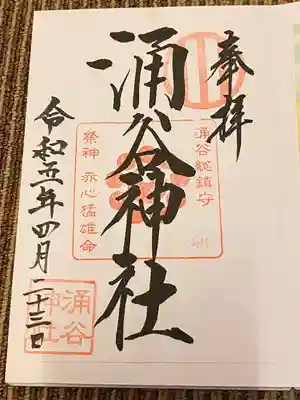 奉拝
涌谷総鎮守
涌谷神社
祭神 赤心猛雄命
令和五年四月二十三日
涌谷
神社